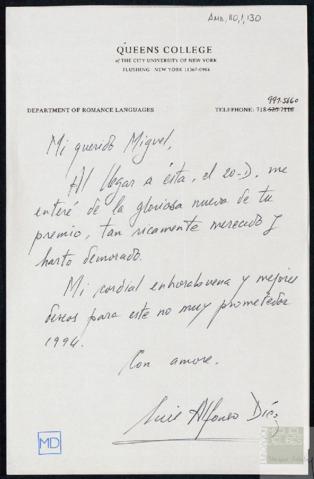 AMD, 110, 1, 130
QUEENS COLLEGE
of THE CITY UNIVERSITY OF NEW YORK
FLUSHING · NEW YORK 11367-0904
997-5660
DEPARTMENT OF ROMANCE LANGUAGES
TELEPHONE: 718-520-7116
Mi querido Miguel,
Al llegar a ésta, el 20-D, me
enteré de la gloriosa nueva de tu
premio, tan ricamente merecido y
harto demorado.
Mi cordial enhorabuena y mejores
deseos para este no muy prometedor
1994.
Con amore,
Luis Alfonso Díez
MD